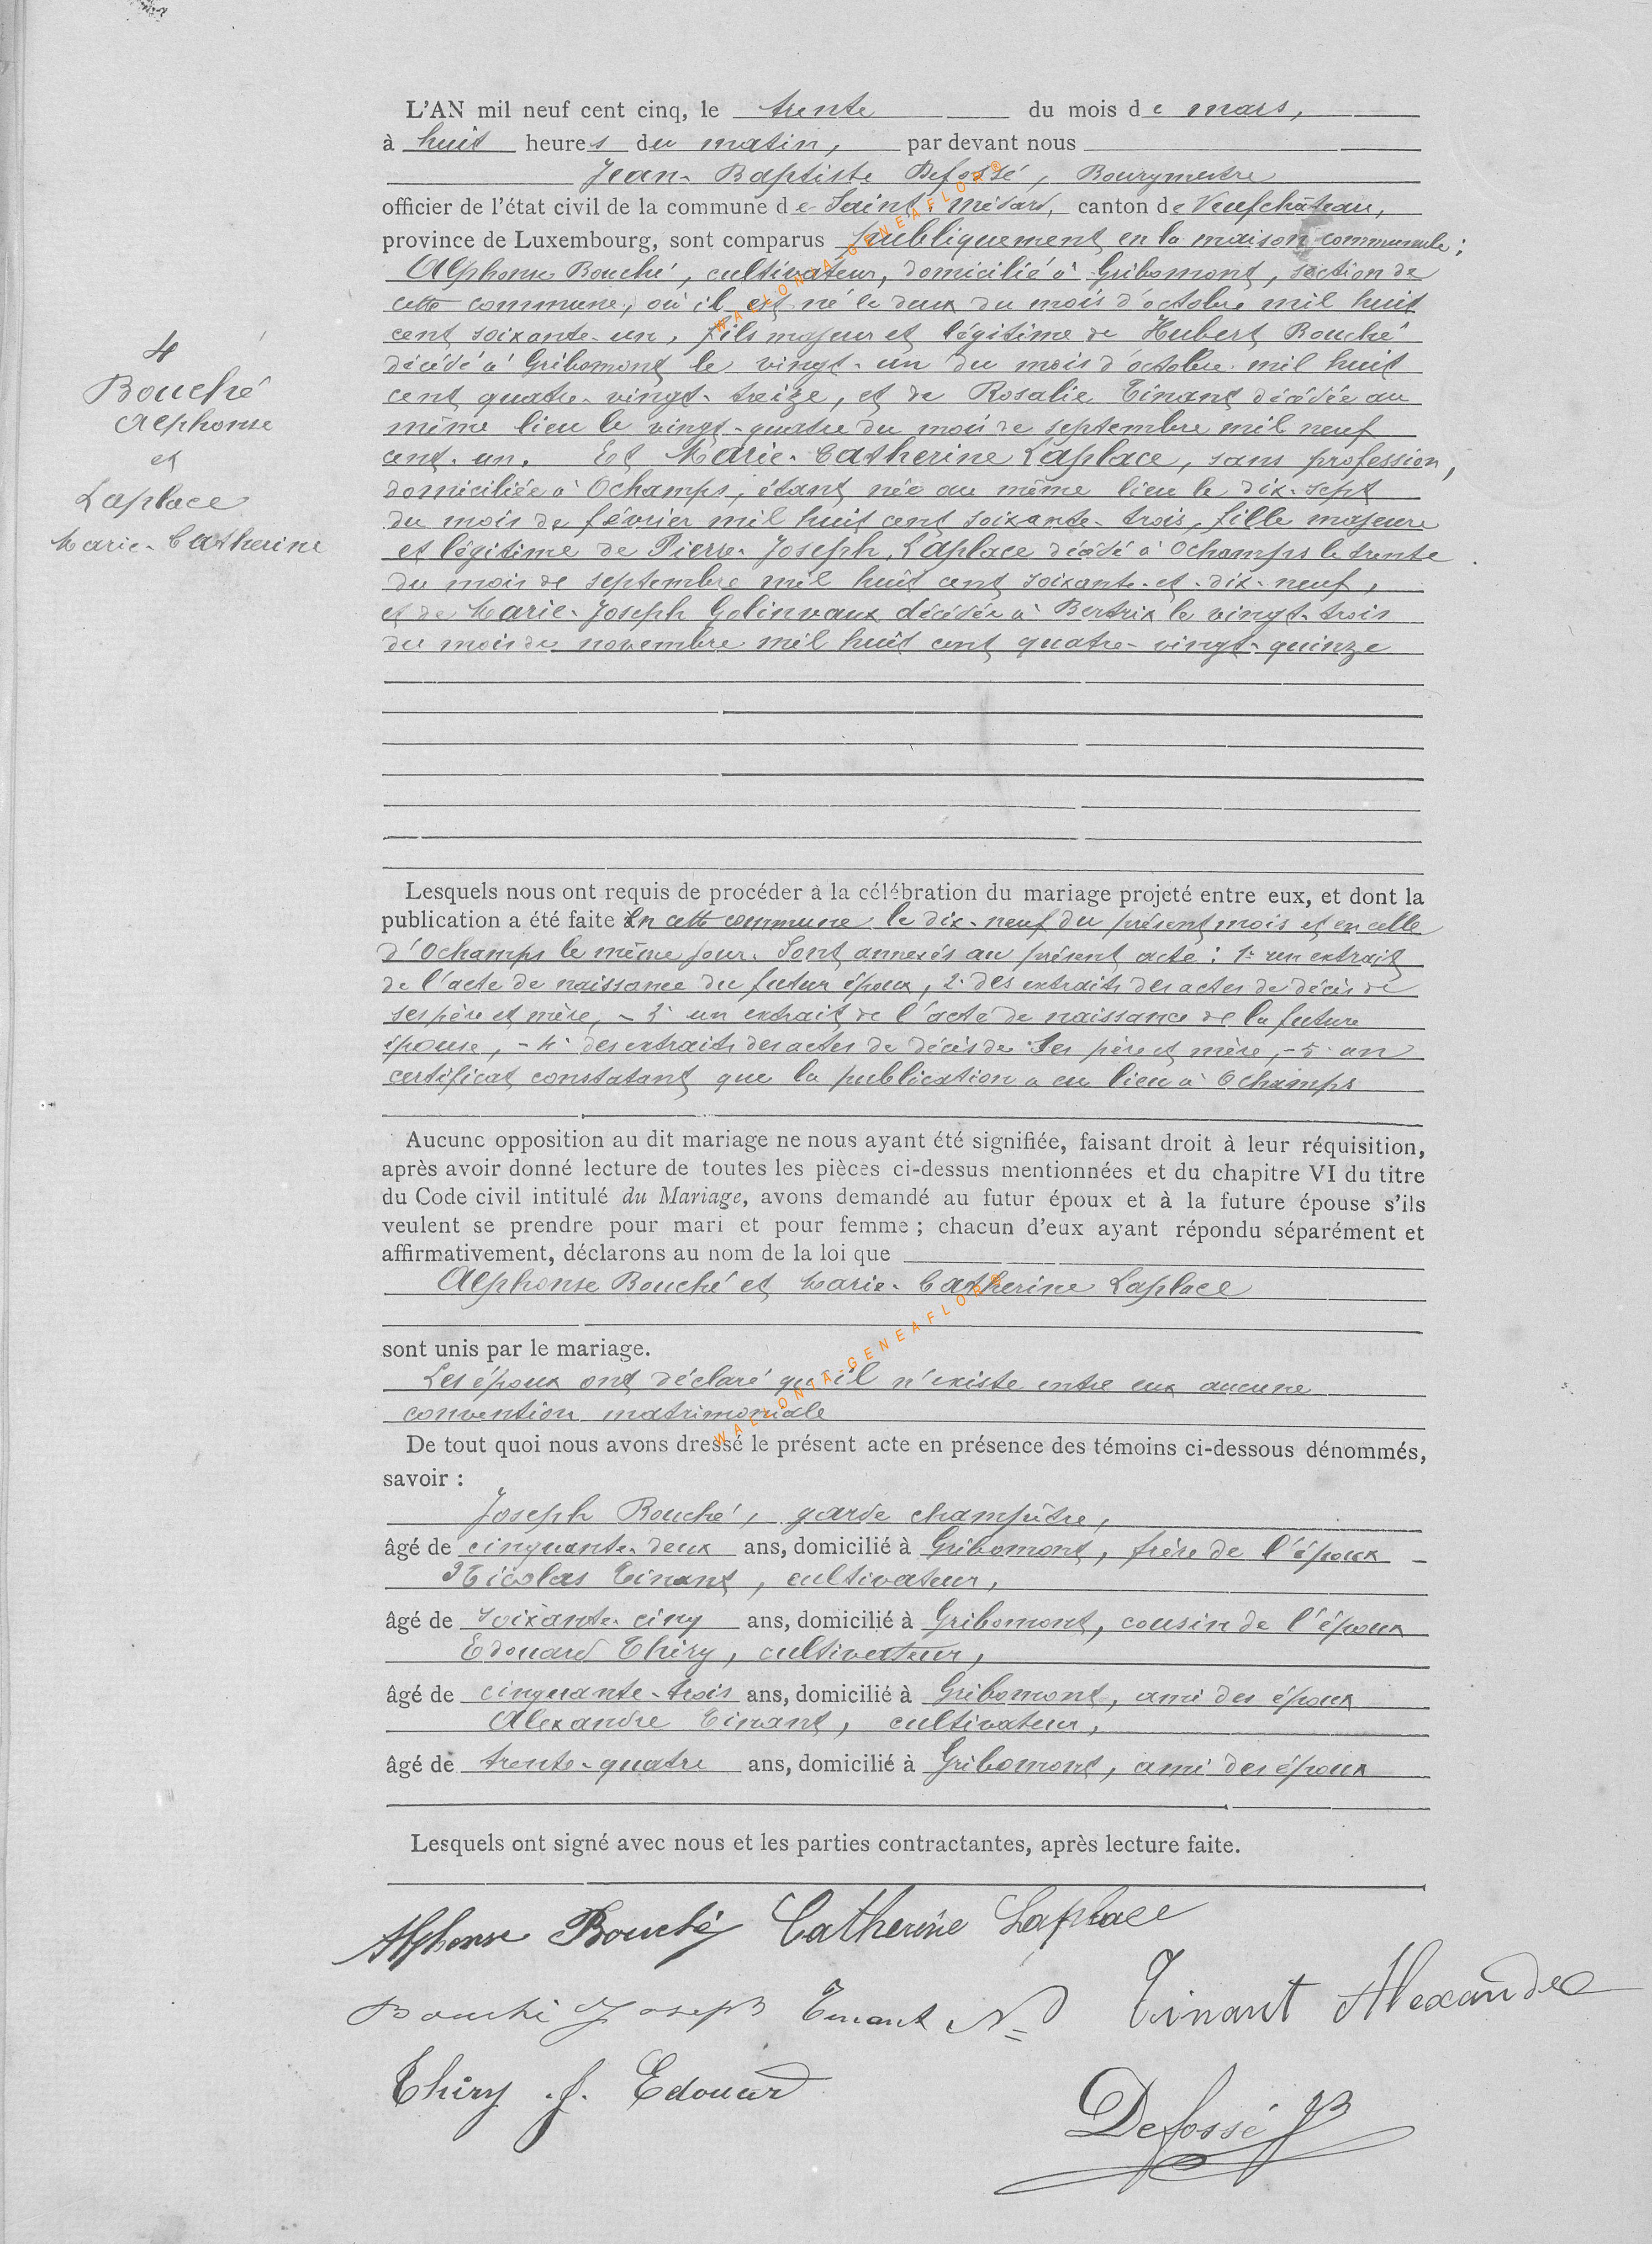 L'AN mil neuf cent cinq, le trente du mois de mars,
à huit heures du matin, par devant nous
Jean-Baptiste Defossé, Bourgmestre
officier de l'état civil de la commune de Saint-Médard, canton de Neufchâteau,
province de Luxembourg, sont comparus publiquement en la maison communale :
Alphonse Bouché, cultivateur, domicilié à Gribomont, section de
cette commune, où il est né le deux du mois d'octobre mil huit
cent soixante-un, fils majeur et légitime de Hubert Bouché
décédé à Gribomont le vingt-un du mois d'octobre mil huit
cent quatre-vingt-treize, et de Rosalie Tinant décédée au
même lieu le vingt-quatre du mois de septembre mil neuf
cent-un. Et Marie-Catherine Laplace, sans profession,
domiciliée à Ochamps, étant née au même lieu le dix-sept
du mois de février mil huit cent soixante-trois, fille majeure
et légitime de Pierre-Joseph Laplace décédé à Ochamps le trente
du mois de septembre mil huit cent soixante-et-dix-neuf,
et de Marie-Joseph Golinvaux décédée à Bertrix le vingt-trois
du mois de novembre mil huit cent quatre-vingt-quinze
4
Bouché
Alphonse
et
Laplace
Marie-Catherine
Lesquels nous ont requis de procéder à la célébration du mariage projeté entre eux, et dont la
publication a été faite en cette commune le dix-neuf du présent mois et en celle
d'Ochamps le même jour. Sont annexés au présent acte : 1° un extrait
de l'acte de naissance du futur époux, 2° des extraits des actes de décès de
ses père et mère, - 3° un extrait de l'acte de naissance de la future
épouse, - 4° des extraits des actes de décès de ses père et mère, - 5° un
certificat constatant que la publication a eu lieu à Ochamps
Aucune opposition au dit mariage ne nous ayant été signifiée, faisant droit à leur réquisition,
après avoir donné lecture de toutes les pièces ci-dessus mentionnées et du chapitre VI du titre
du Code civil intitulé du Mariage, avons demandé au futur époux et à la future épouse s'ils
veulent se prendre pour mari et pour femme ; chacun d'eux ayant répondu séparément et
affirmativement, déclarons au nom de la loi que
Alphonse Bouché et Marie-Catherine Laplace
sont unis par le mariage.
Les époux ont déclaré qu'il n'existe entre eux aucune
convention matrimoniale
De tout quoi nous avons dressé le présent acte en présence des témoins ci-dessous dénommés,
savoir :
Joseph Bouché, garde champêtre,
âgé de cinquante-deux ans, domicilié à Gribomont, frère de l'époux -
Nicolas Tinant, cultivateur,
âgé de soixante-cinq ans, domicilié à Gribomont, cousin de l'époux
Edouard Thiry, cultivateur,
âgé de cinquante-trois ans, domicilié à Gribomont, ami des époux
Alexandre Tinant, cultivateur,
âgé de trente-quatre ans, domicilié à Gribomont, ami des époux
Lesquels ont signé avec nous et les parties contractantes, après lecture faite.
Alphonse Bouché Catherine Laplace
Bouché Joseph Tinant N Tinant Alexandre
Thiry . J. Edouard
Defossé JB
WALLONIA-GENEAFLORE®
WALLONIA-GENEAFLORE®